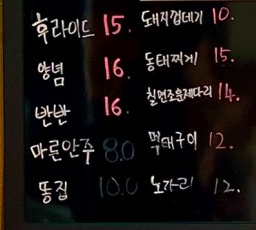 후라이드 15.
양념 16.
반반 16.
마른안주 8.0
똥집 10.0
돼지껍데기 10.
동태찌개 15.
칠면조훈제다리 14.
먹태구이 12.
노가리 12.